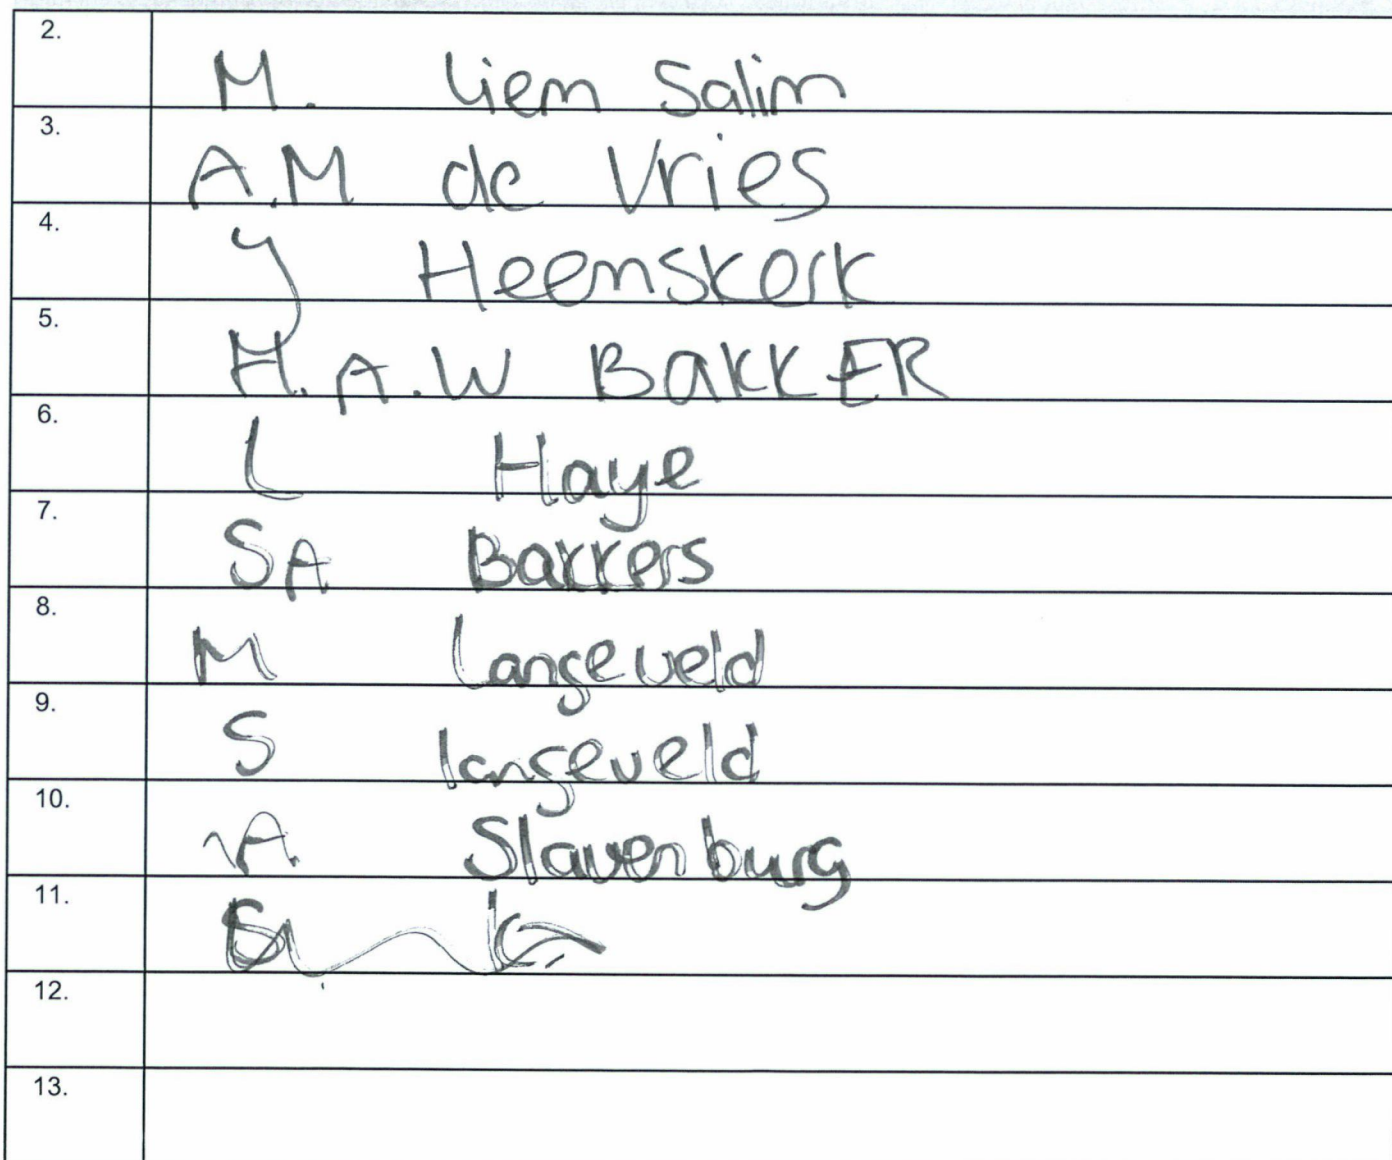 2. M. Liem Salim
3. A.M de Vries
4. Y Heemskerk
5. H.A.W BAKKER
6. L Haye
7. SA Bakkers
8. M Langeveld
9. S langeveld
10. A Slavenburg
11.
12.
13.